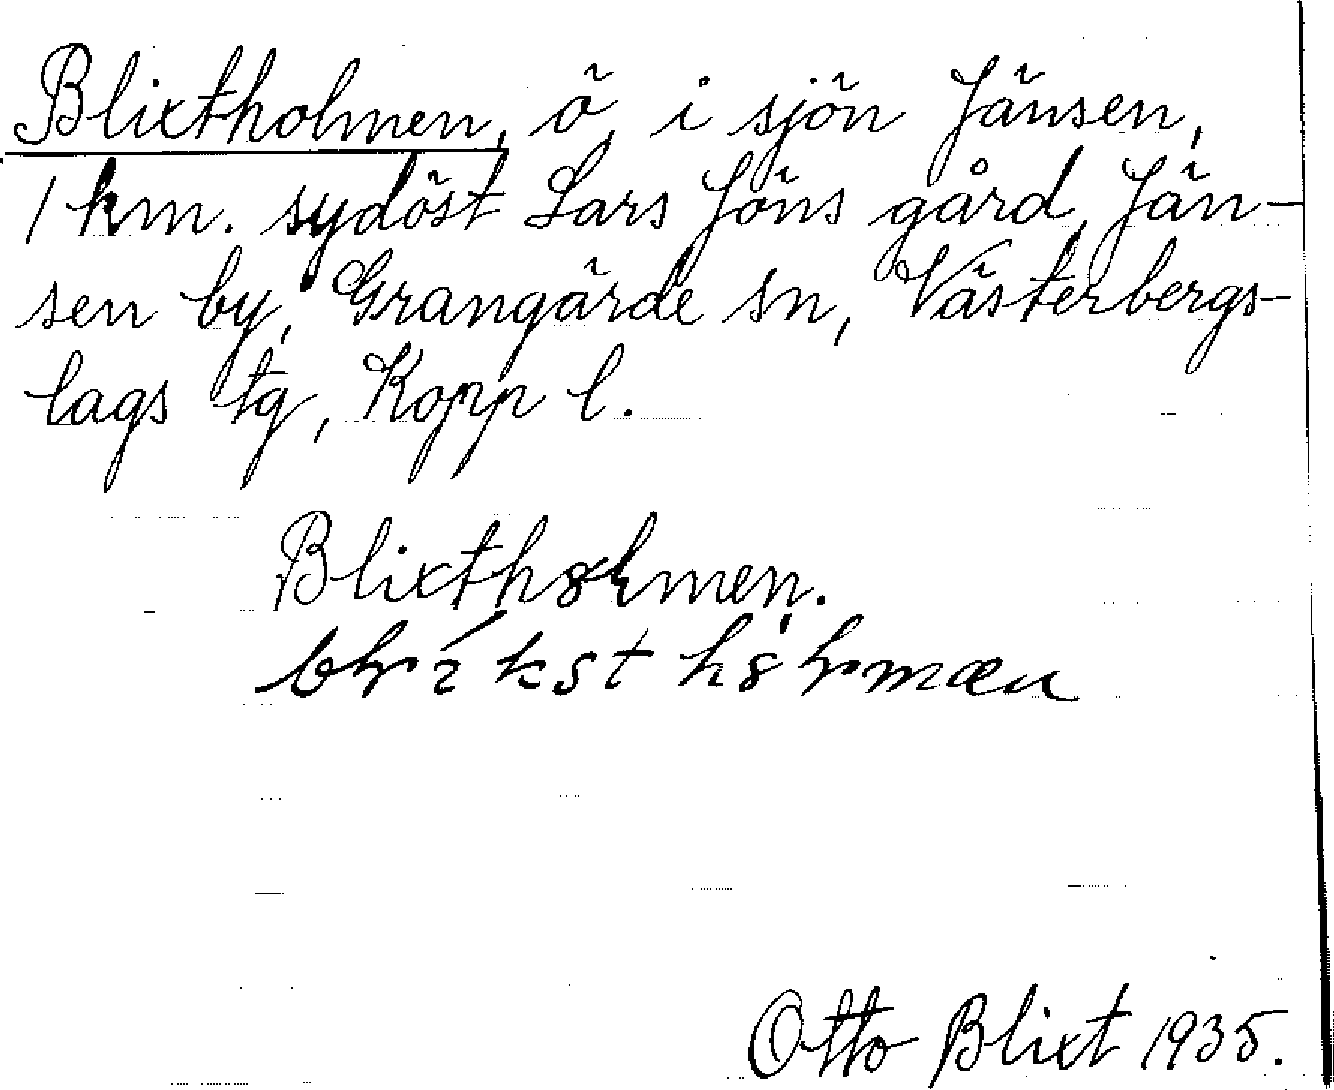 Blixtholmen, ö, i sjön Jänsen,
1 km. sydöst Lars Jöns gård, Jän-
sen by, Grangärde sn, Västerbergs-
lags tg, Kopp l.
Blixtholmen.
Otto Blixt 1935.